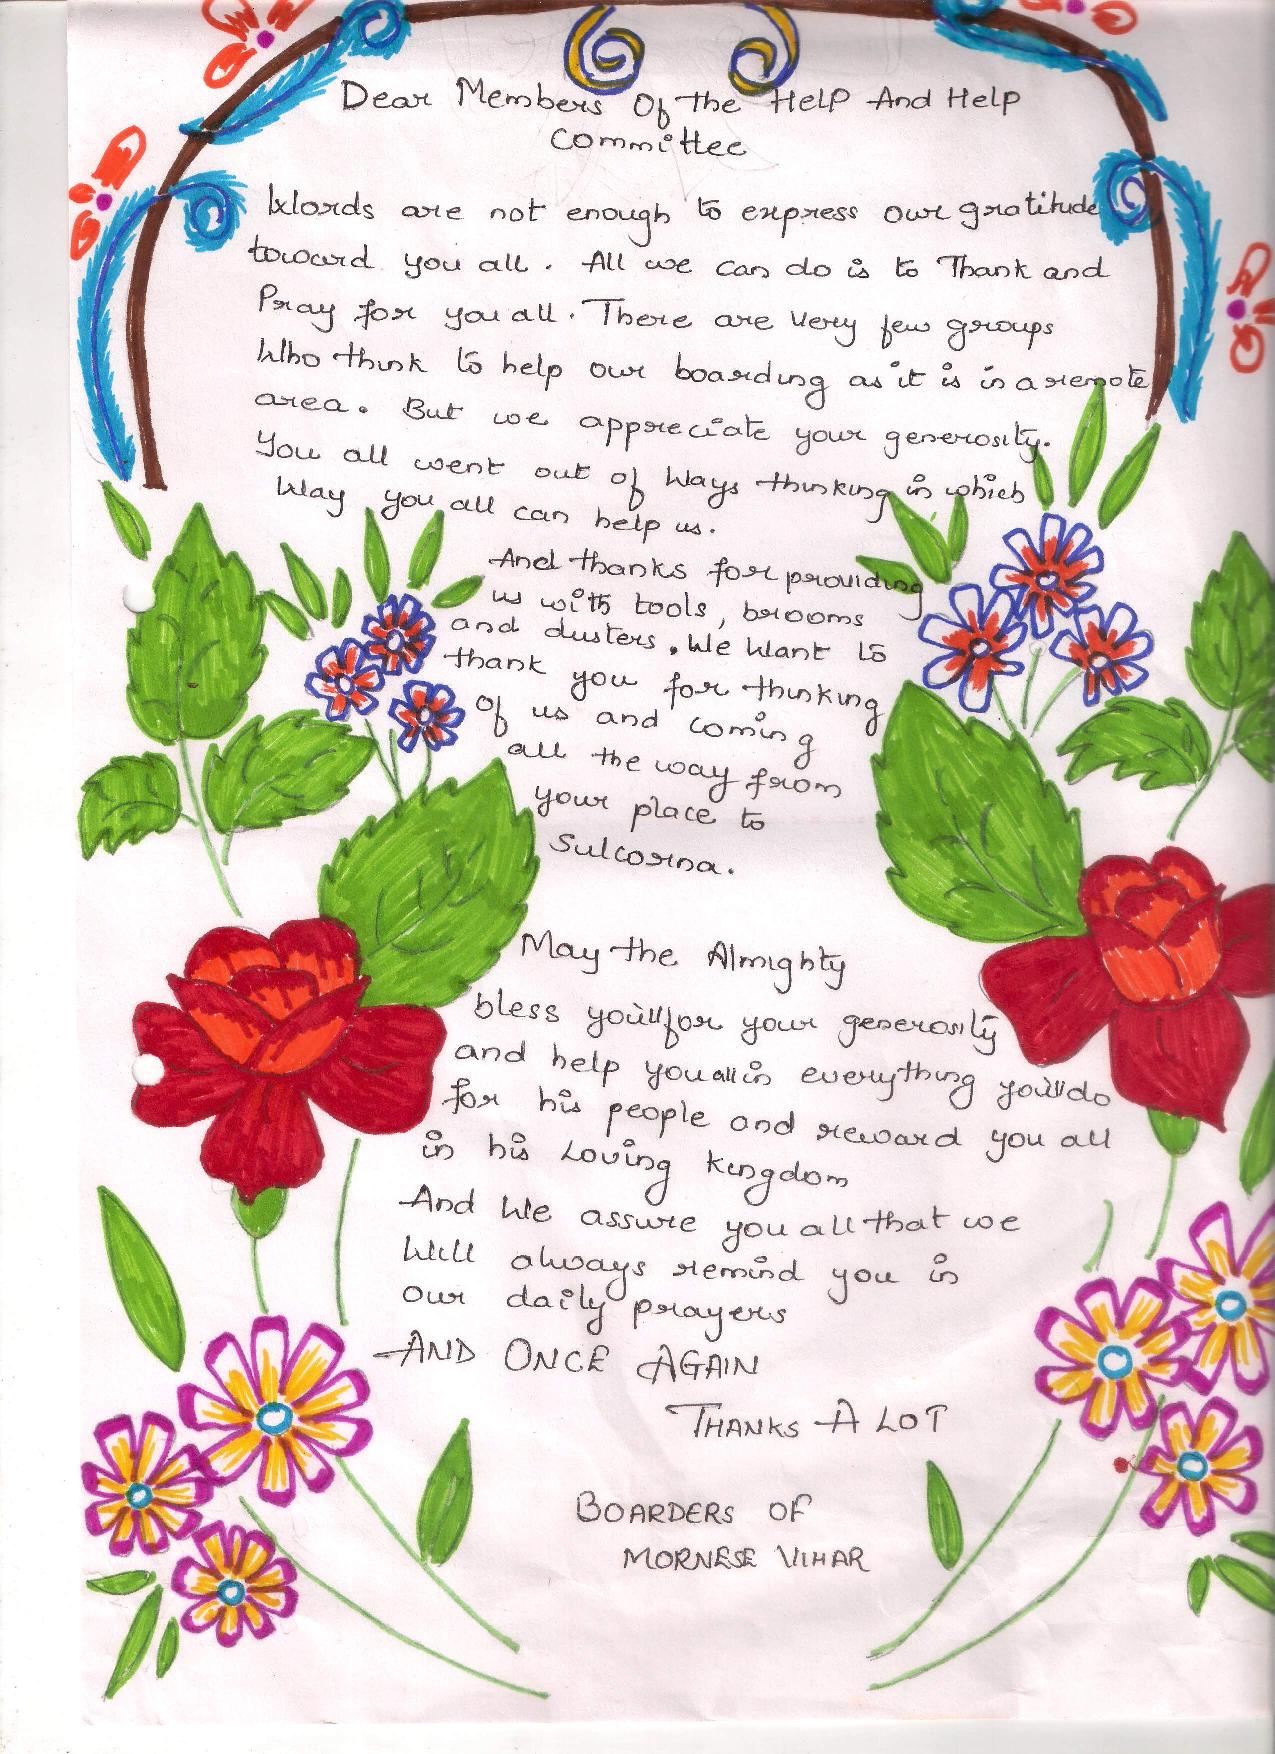 Dear Members Of The HELP And Help
Committee
Words are not enough to express our gratitude
toward you all. All we can do is to Thank and
Pray for you all. There are very few groups
Who think to help our boarding as it is in a remote
area. But we appreciate your generosity.
You all went out of Ways thinking in which
Way you all can help us.
And thanks for providing
us with tools, brooms
and dusters. We Want to
thank you for thinking
of us and coming
all the way from
your place to
Sulcorna.
May the Almighty
bless you'll for your generosity
and help you all in everything you'll do
for his people and reward you all
in his Loving kingdom
And We assure you all that we
Will always remind you in
our daily prayers
AND ONCE AGAIN
THANKS A LOT
BOARDERS OF
MORNESE VIHAR